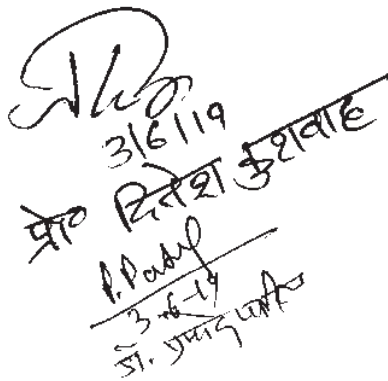 3/6/19
प्रो० दिनेश कुशवाह
P. Patel
3-6-19
डॉ. प्रमोद पटेल